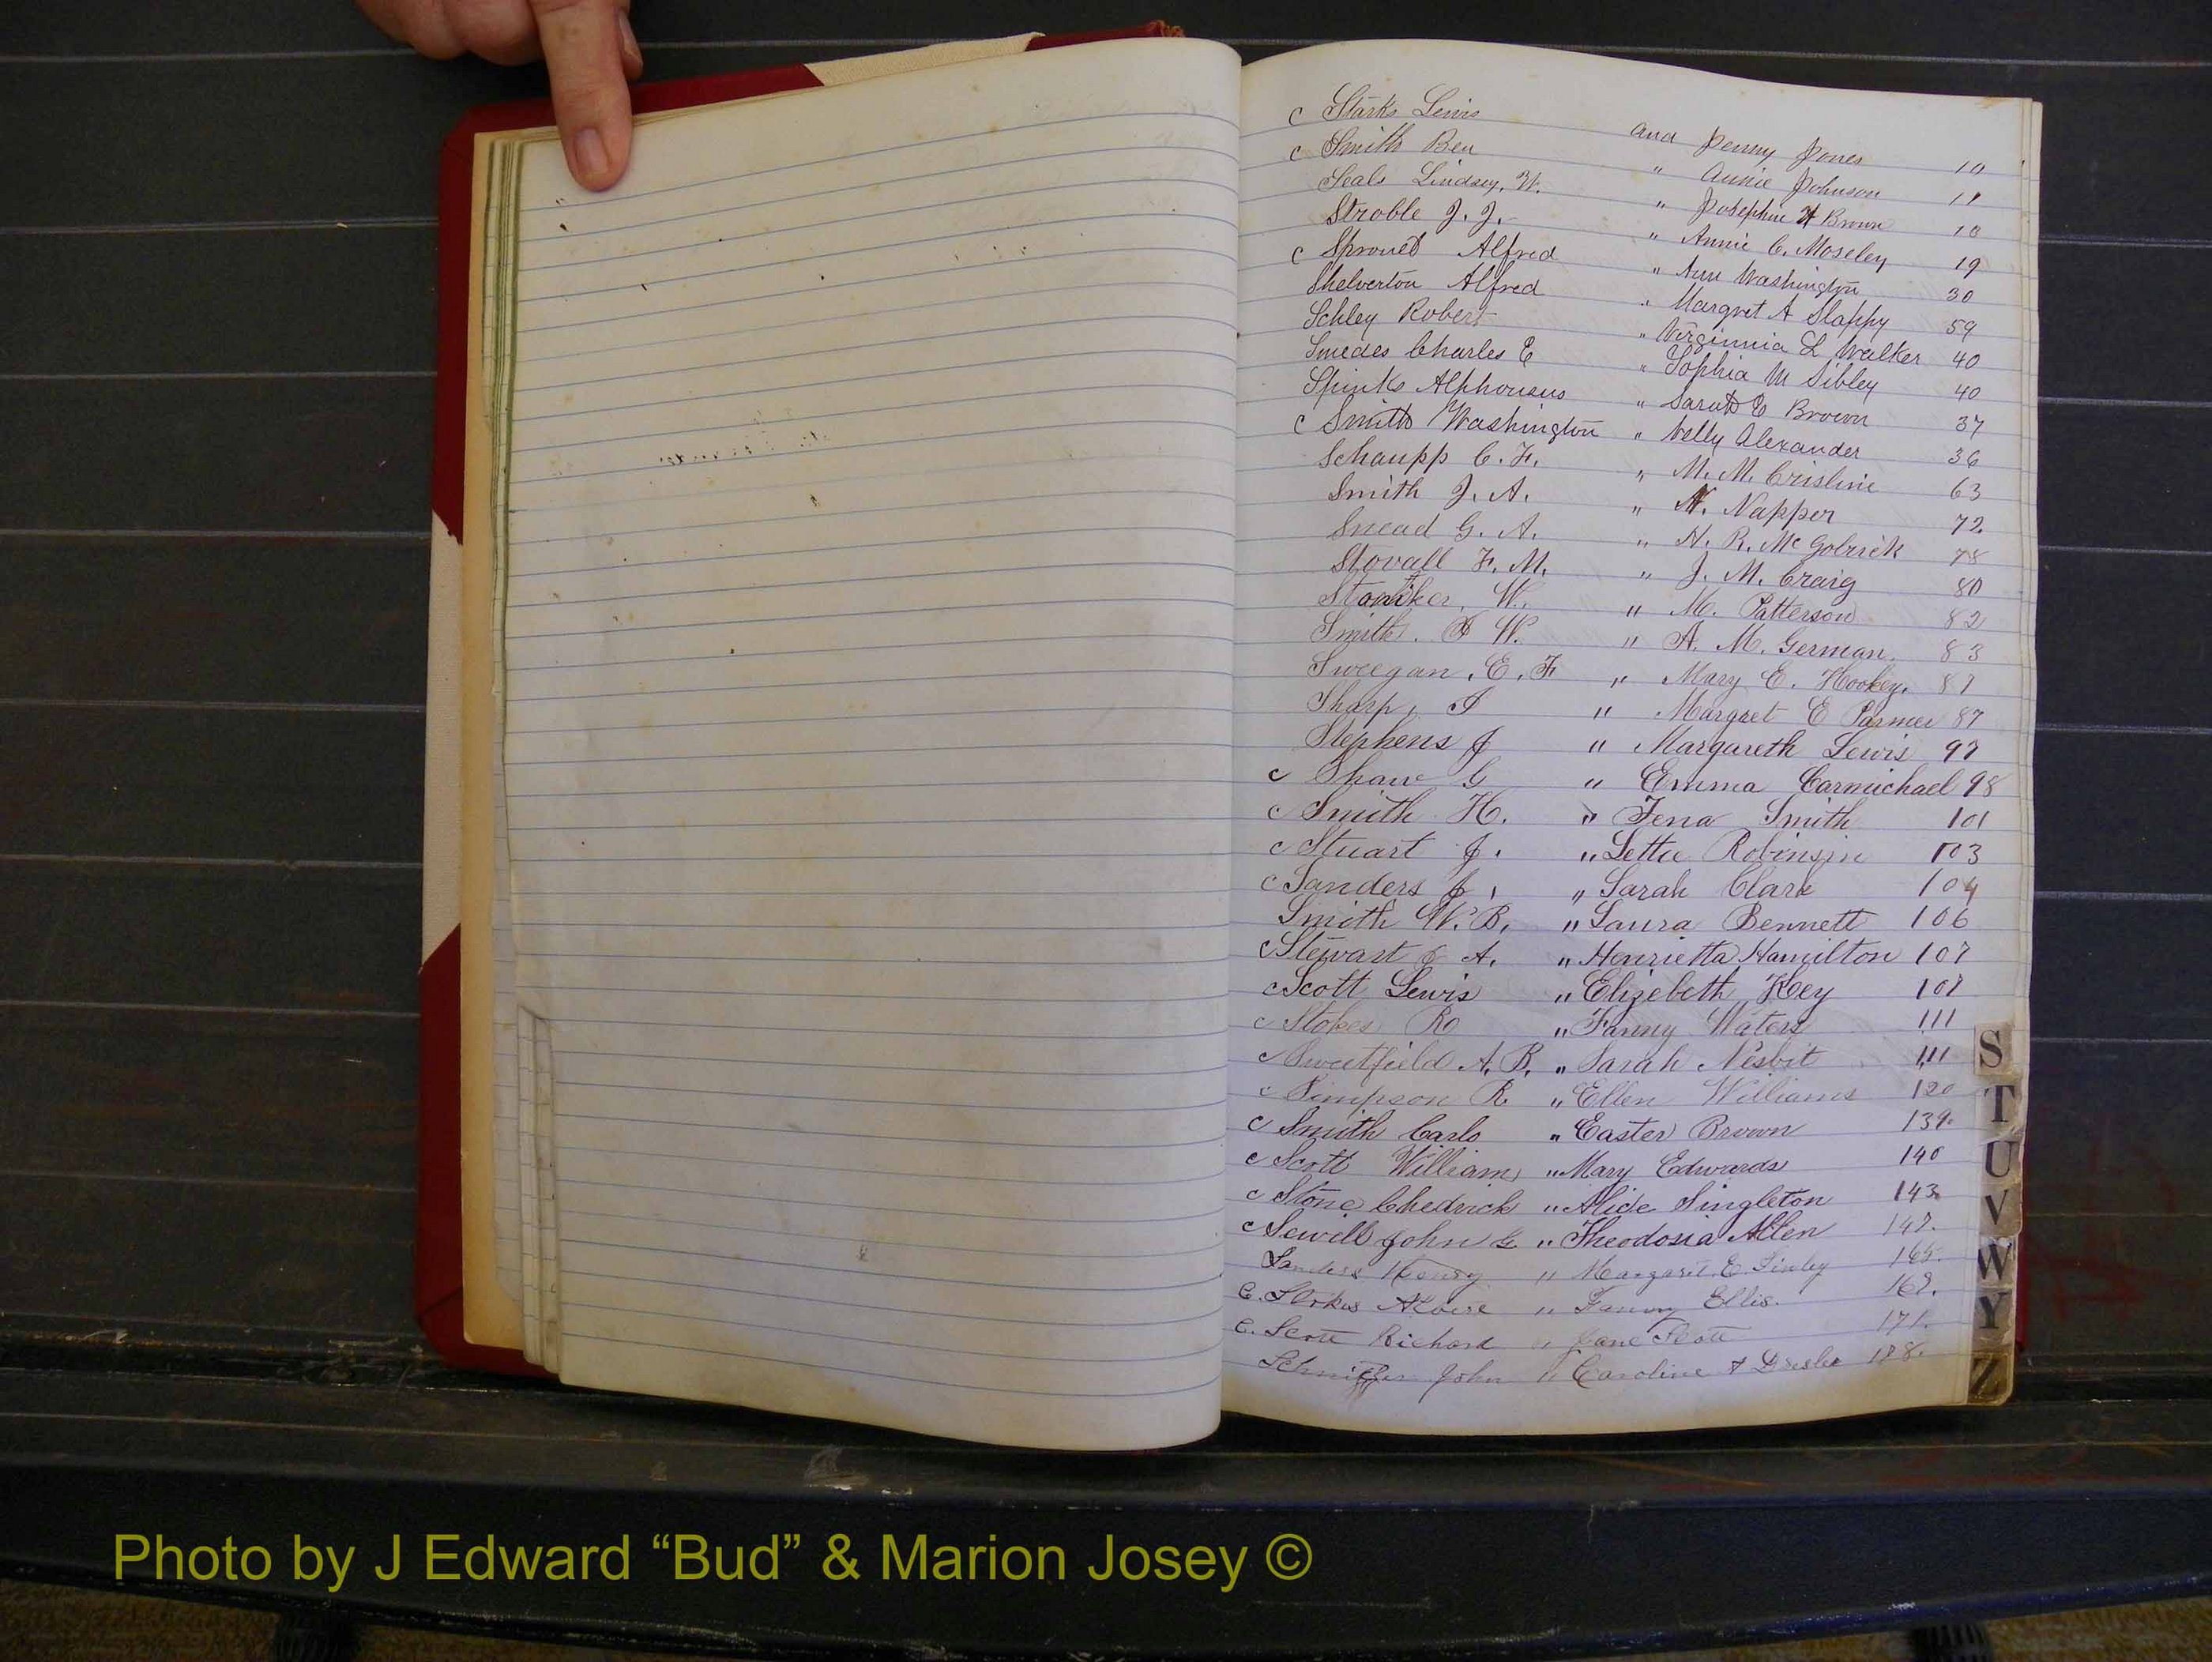 c Starks Lewis and Jenny Jones 10
c Smith Ben " Annie Johnson 11
Seals Lindsey. W. " Josephine H Brown 18
Stroble J. J. " Annie C. Moseley 19
c Sprouel Alfred " Ann Washington 30
Shelverton Alfred " Margret A Slappy 59
Schley Robert " Virginnia L Walker 40
Smedes Charles E " Sophia M Sibley 40
Spinks Alphonsus " Sarah E Brown 37
c Smith Washington " Nelly Alexander 36
Schaupp C. F. " M. M. Crisline 63
Smith J. A. " N. Napper 72
Snead G. A. " H. R. McGolrick 78
Stovall F. M. " J. M. Craig 80
W. " M. Patterson 82
Smith. W. " A. M. German. 83
Sweegan. E. F " Mary E. Hookey. 87
Sharp, " Margret E 87
Stephens J " Margareth Lewis 97
c Shaw G " Emma Carmichael 98
c Smith H. " Fena Smith 101
c Stuart J. " Lettie Robinson 103
c Sanders J, " Sarah Clark 104
Smith W. B, " Laura Bennett 106
c Stewart J A. " Henrietta Hamilton 107
c Scott Lewis " Elizebeth Key 107
c Stokes Ro " Fanny Waters 111
c Sweetfield A. B. " Sarah Nesbit 111
c Simpson R. " Ellen Williams 120
c Smith Carlo " Easter Brown 139.
c Scott William " Mary Edwards 140
c Stone Chedrick " Alide Singleton 143
c Sewell John G " Theodosia Allen 147.
Sanders Henry " Margaret. E Finley
C. Stokes " Fanny Ellis. 169.
C. Scott Richard " Jane Scott 171.
John " Caroline 188.
S
T
U
V
W
Y
Z
Photo by J Edward “Bud” & Marion Josey ©